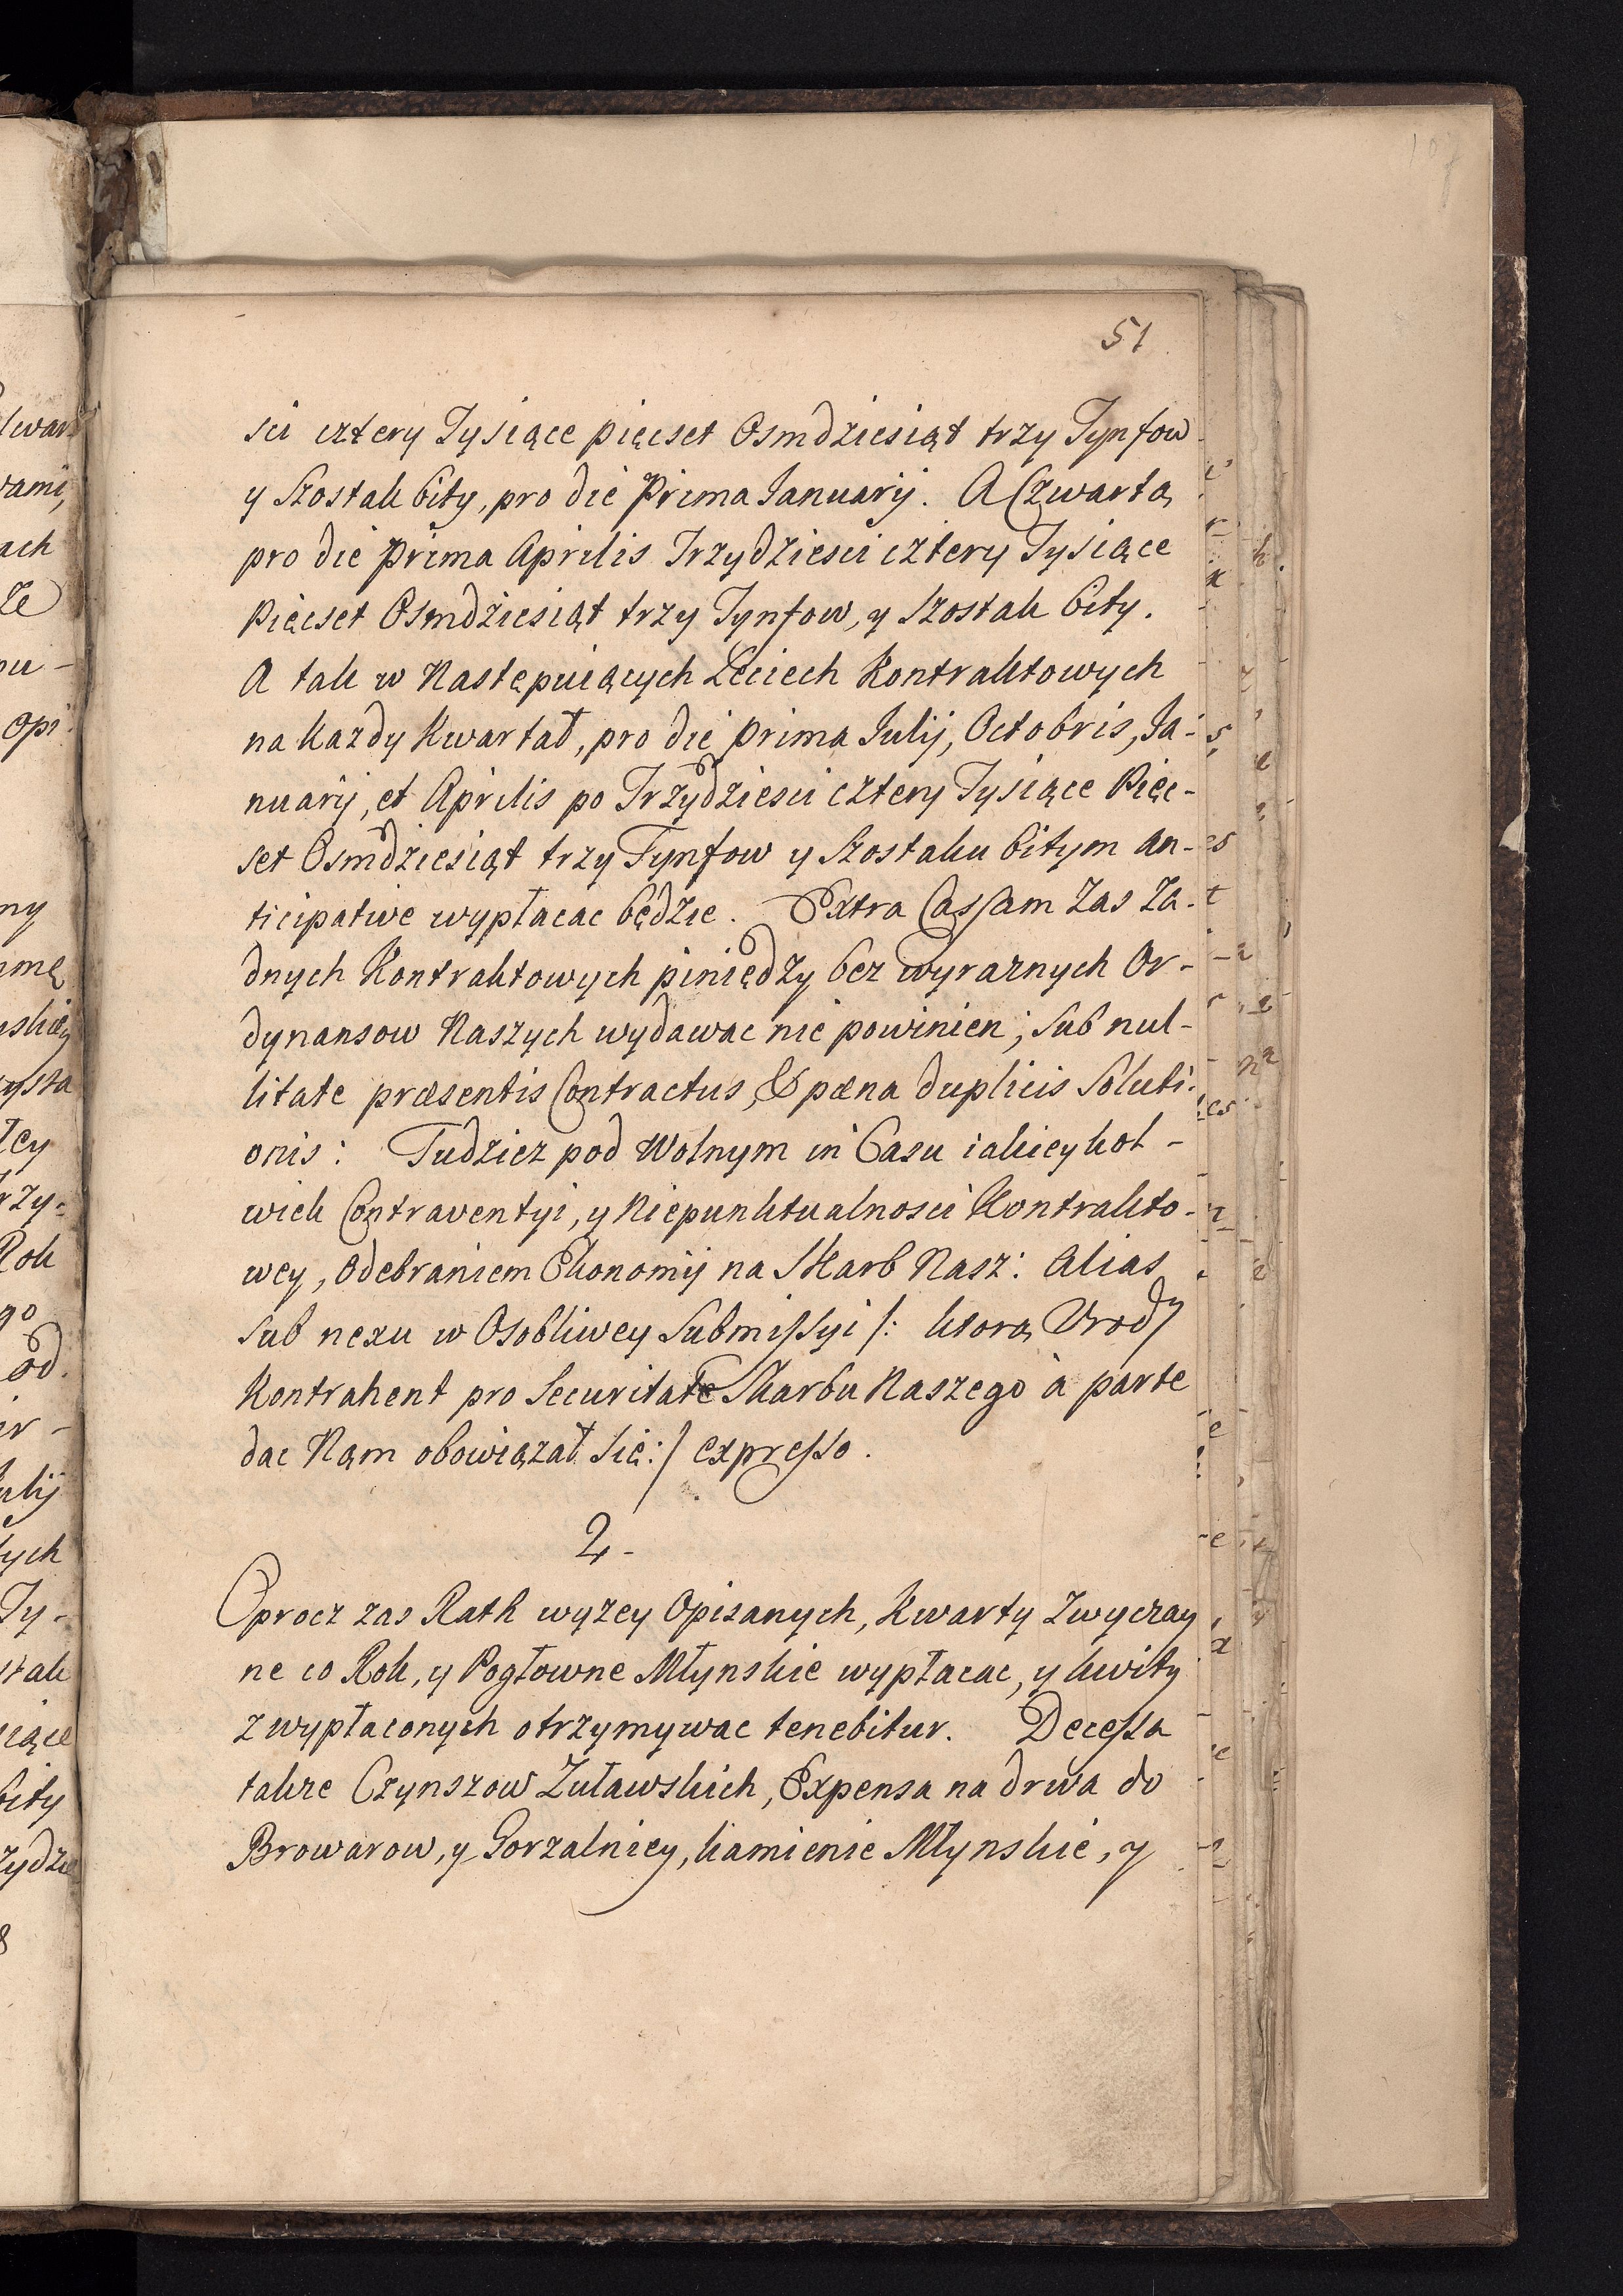 51
sci cztery Tysiące pięcset Osmdziesiąt trzy Tynfow
y Szostak bity, pro die Prima Ianuarij. A Czwarta
pro die Prima Aprilis Trzydziesci cztery Tysiące
Pięcset Osmdziesiąt trzy Tynfow, y Szostak bity.
A tak w Następuiących Leciech Kontraktowych
na Kazdy Kwartał, pro die prima Iulij, Octobris, Ia-
nuarij, et Aprilis po Trzydziesci cztery Tysiące Pięc-
set Osmdziesiąt trzy Tynfow y Szostaku bitym an-
ticipative wypłacac będzie. Extra Cassam Zas Za-
dnych Kontraktowych piniędzy bez wyraznych Or-
dynansow Naszych wydawac nie powinien; sub nul-
litate præsentis Contractus, & pœna duplicis Soluti-
onis: Tudziez pod Wolnym in Casu iakieykol-
wiek Contraventyi, y Niepunktualnosci Kontrakto-
wey, Odebraniem Ekonomij na Skarb Nasz: alias
sub nexu w Osobliwey Submissyi /: ktorą Urodz
Kontrahent pro Securitate Skarbu Naszego à parte
dac Nąm obowiązał Się:/ expresso.
2.
Oprocz zas Rath wyzey Opisanych, Kwarty Zwyczay
ne co Rok, y Pogłowne Młynskie wypłacac, y kwity
z wypłaconych otrzymywac tenebitur. Decessa
takze Czynszow Zuławskich, Expensa na drwa do
Browarow, y Gorzalnicy, kamienie Młynskie, y